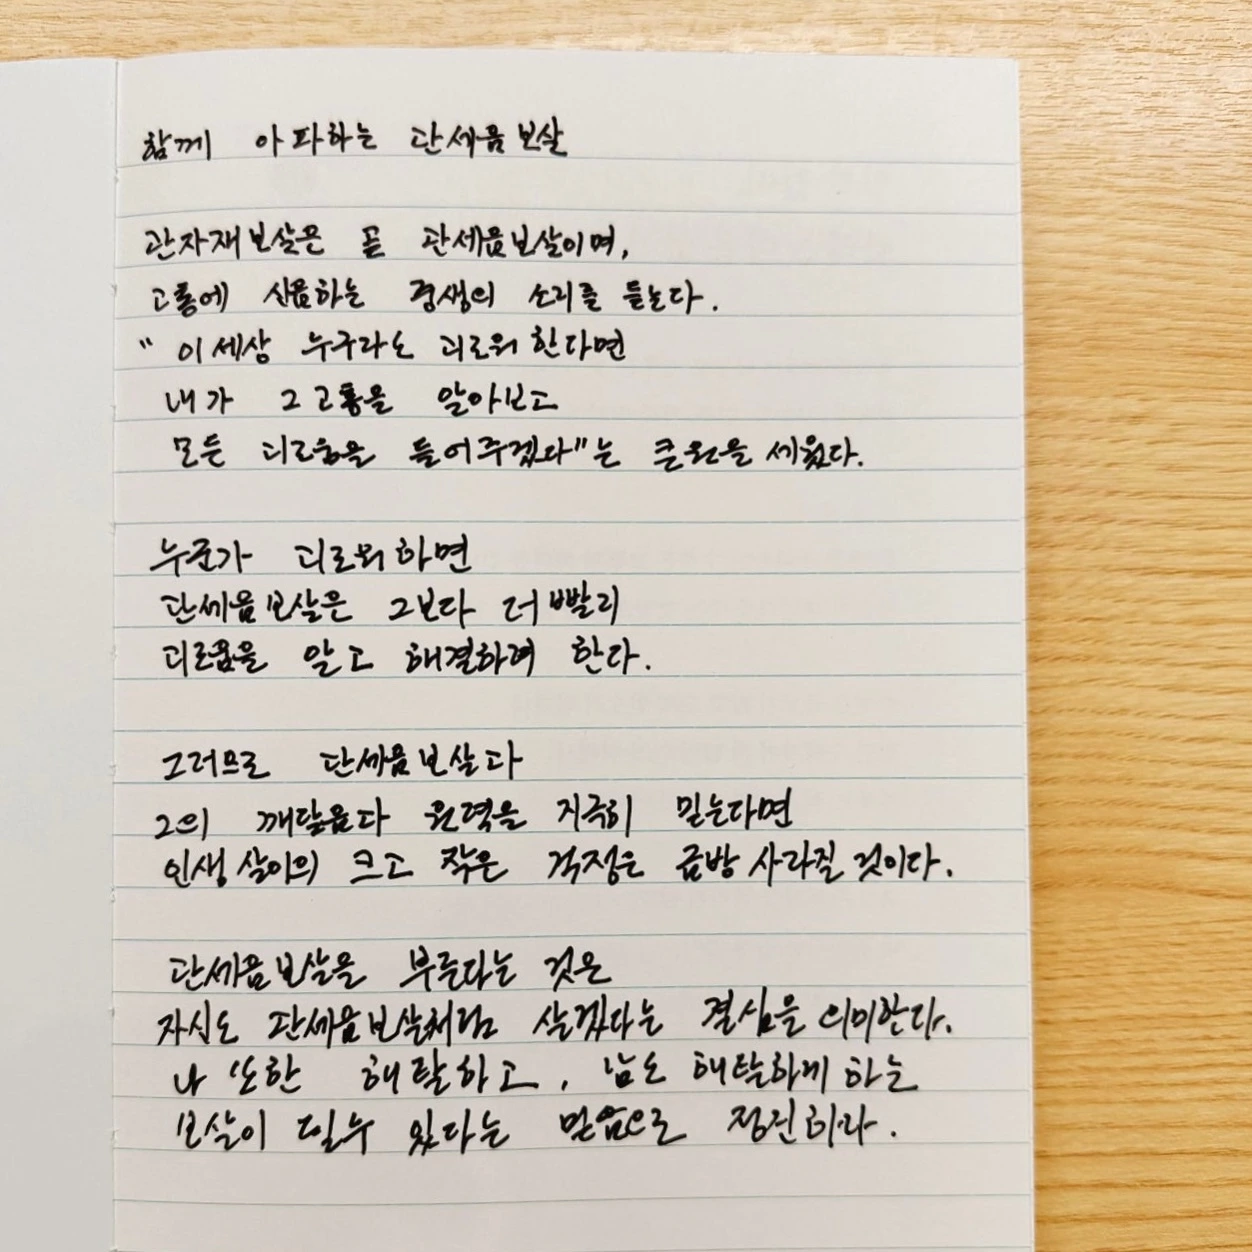 함께 아파하는 관세음보살
관자재보살은 곧 관세음보살이며,
고통에 신음하는 중생의 소리를 듣는다.
"이 세상 누구라도 괴로워한다면
내가 그 고통을 알아보고
모든 괴로움을 들어주겠다"는 큰 원을 세웠다.
누군가 괴로워하면
관세음보살은 그보다 더 빨리
괴로움을 알고 해결하려 한다.
그러므로 관세음보살과
그의 깨달음과 원력을 지극히 믿는다면
인생살이의 크고 작은 걱정은 금방 사라질 것이다.
관세음보살을 부른다는 것은
자신도 관세음보살처럼 살겠다는 결심을 의미한다.
나 또한 해탈하고, 남도 해탈하게 하는
보살이 될 수 있다는 믿음으로 정진하라.